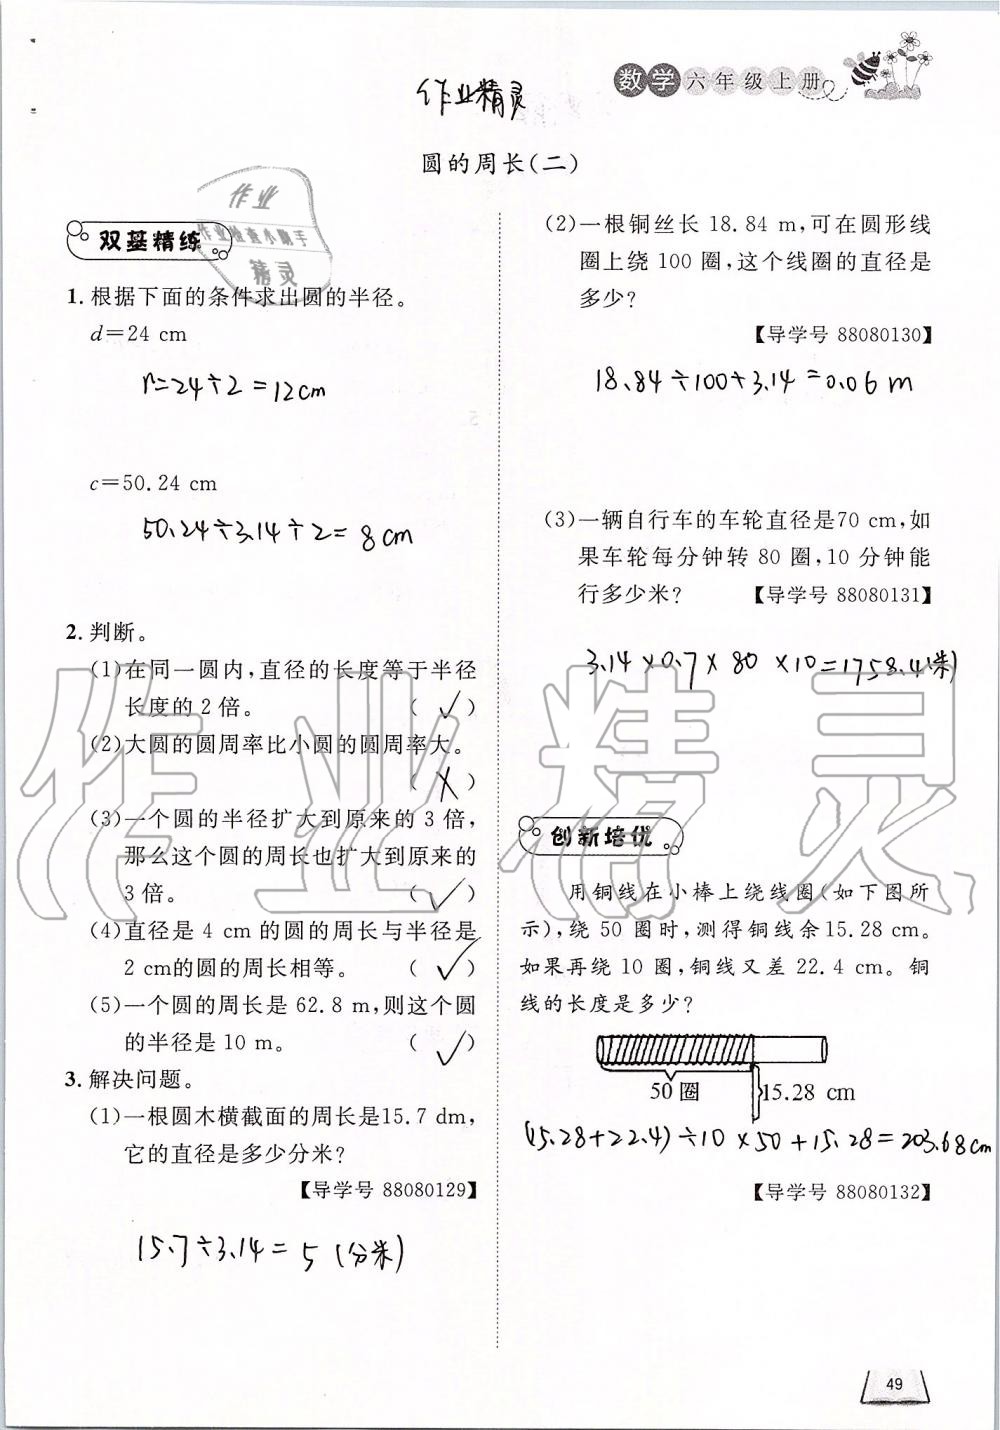 数学六年级上册
作业精灵
圆的周长(二)
作业
作业检查小助手
精灵
双基精练
1. 根据下面的条件求出圆的半径。
d=24 cm
r=24÷2=12cm
c=50.24 cm
50.24÷3.14÷2=8cm
2. 判断。
(1)在同一圆内,直径的长度等于半径
长度的2倍。 (√)
(2)大圆的圆周率比小圆的圆周率大。
(X)
(3)一个圆的半径扩大到原来的3倍,
那么这个圆的周长也扩大到原来的
3倍。 (√)
(4)直径是4 cm的圆的周长与半径是
2 cm的圆的周长相等。 (√)
(5)一个圆的周长是62.8 m,则这个圆
的半径是10 m。 (√)
3. 解决问题。
(1)一根圆木横截面的周长是15.7 dm,
它的直径是多少分米?
【导学号 88080129】
15.7÷3.14=5(分米)
(2)一根铜丝长18.84 m,可在圆形线
圈上绕100圈,这个线圈的直径是
多少?
【导学号 88080130】
18.84÷100÷3.14=0.06m
(3)一辆自行车的车轮直径是70 cm,如
果车轮每分钟转80圈,10分钟能
行多少米? 【导学号 88080131】
3.14×0.7×80×10=1758.4(米)
创新培优
用铜线在小棒上绕线圈(如下图所
示),绕50圈时,测得铜线余15.28 cm。
如果再绕10圈,铜线又差22.4 cm。铜
线的长度是多少?
50圈 15.28 cm
(15.28+22.4)÷10×50+15.28=203.68cm
【导学号 88080132】
作业精灵
49